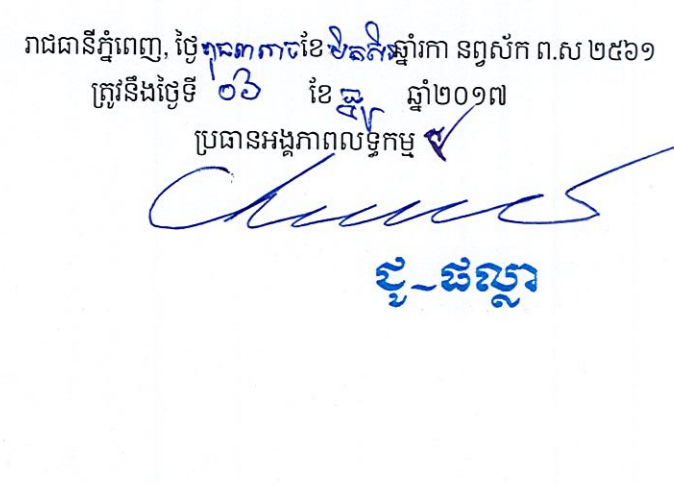 រាជធានីភ្នំពេញ, ថ្ងៃពុធ៣រោច ខែមិគសិរ ឆ្នាំរកា នព្វស័ក ព.ស ២៥៦១
ត្រូវនឹងថ្ងៃទី ០៦ ខែ ធ្នូ ឆ្នាំ២០១៧
ប្រធានអង្គភាពលទ្ធកម្ម
ជូ-ផល្លា